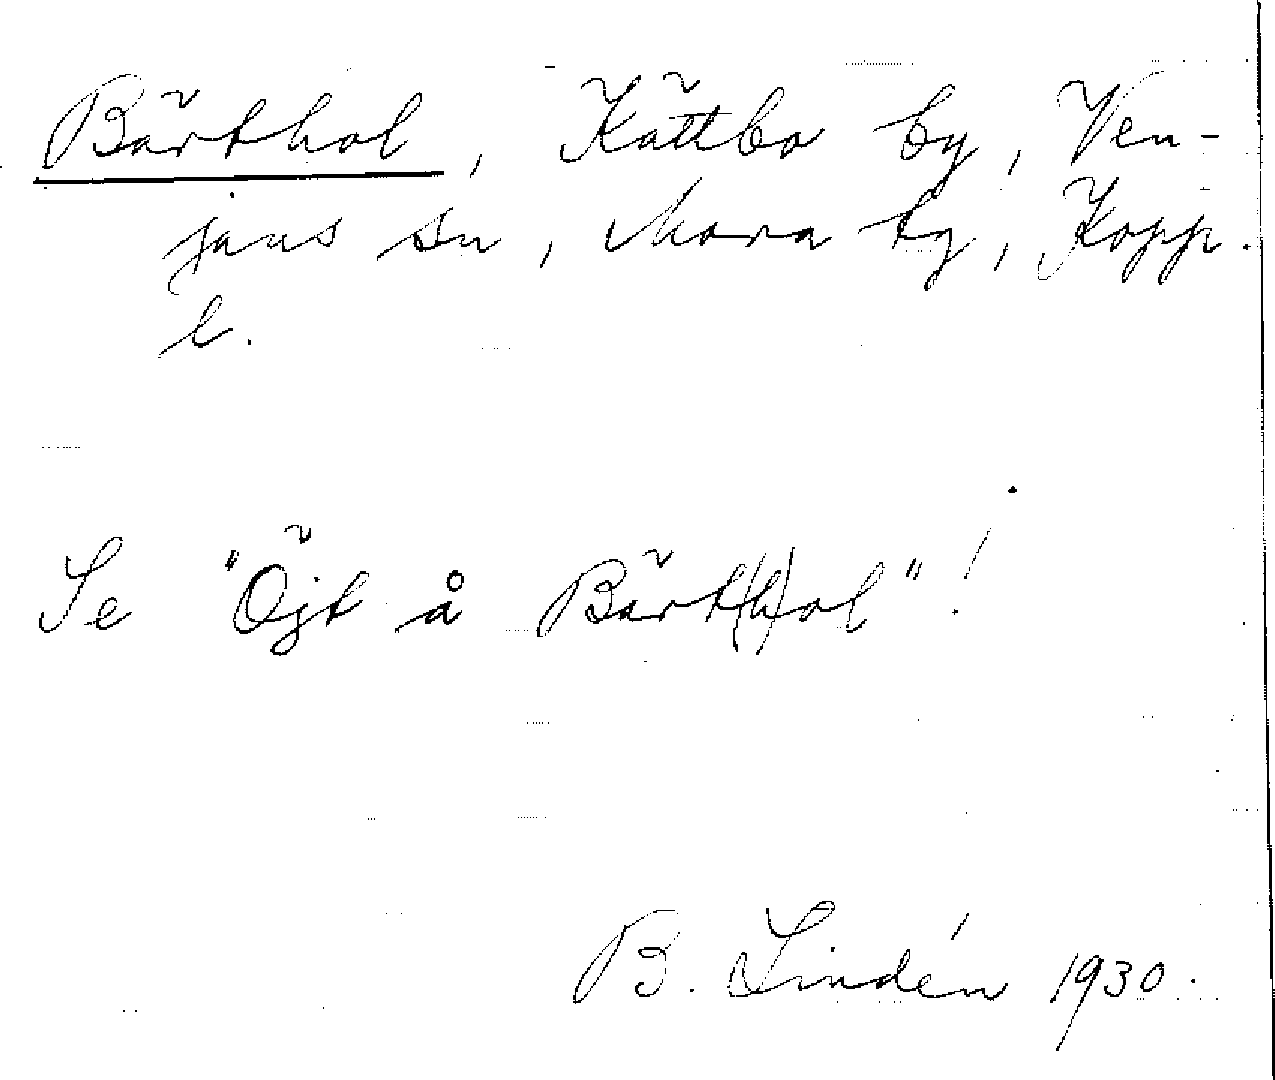 Bärthol, Kättbo by, Ven-
jans sn, Mora tg, Kopp.
l.
Se "Öjt å Bärt(h)ol"!
B. Lindén 1930.